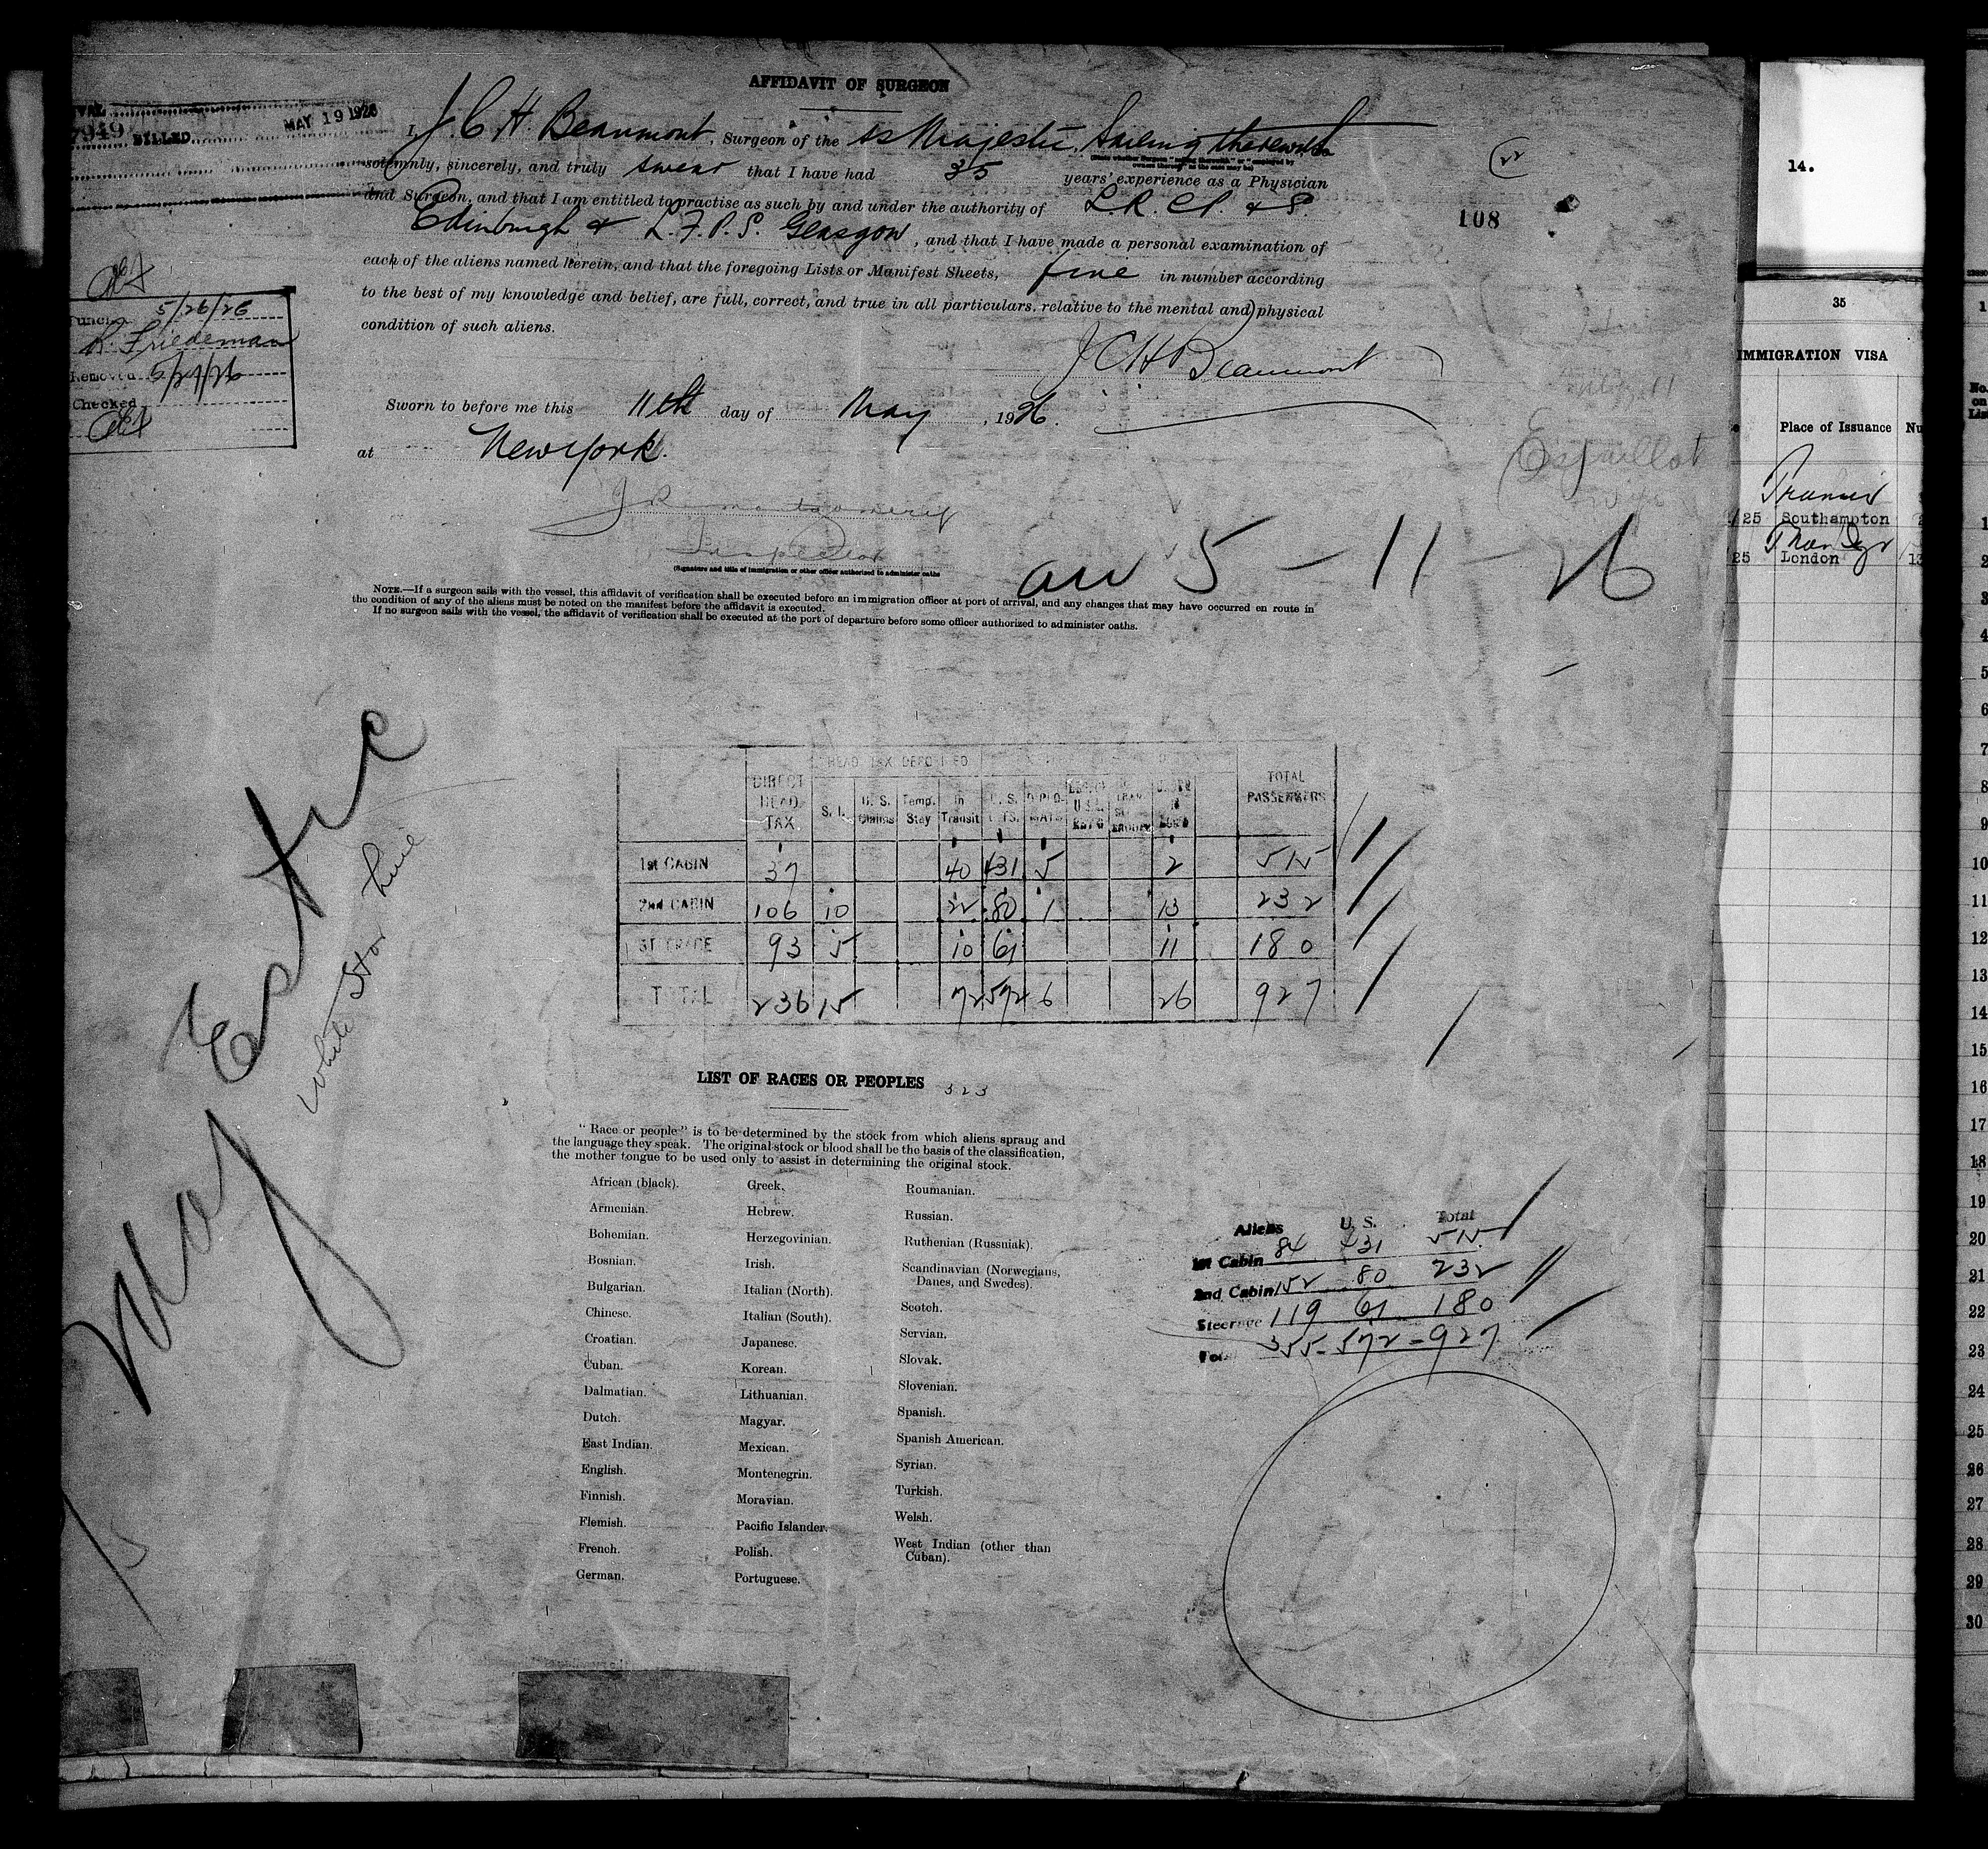 AFFIDAVIT OF SURGEON
7949 BILLED MAY 19 1926
I, J. C. H. Beaumont, Surgeon of the ss Majestic, Sailing therewith
solemnly, sincerely, and truly swear that I have had 35 years' experience as a Physician
and Surgeon, and that I am entitled to practise as such by and under the authority of L. R. C. P. & S.
Edinburgh & L. F. P. S. Glasgow, and that I have made a personal examination of
each of the aliens named herein, and that the foregoing Lists or Manifest Sheets, five in number according
to the best of my knowledge and belief, are full, correct, and true in all particulars. relative to the mental and physical
condition of such aliens.
J C H Beaumont
Sworn to before me this 11th day of May, 1926.
at New York.
Inspector
(Signature and title of immigration or other officer authorized to administer oaths
NOTE.—If a surgeon sails with the vessel, this affidavit of verification shall be executed before an immigration officer at port of arrival, and any changes that may have occurred en route in
the condition of any of the aliens must be noted on the manifest before the affidavit is executed.
If no surgeon sails with the vessel, the affidavit of verification shall be executed at the port of departure before some officer authorized to administer oaths.
22
108
5/26/26
R. Friedeman
Removed 5/27/26
Checked
Espaillat
arr 5-11-26
Majestic
White Star Line
HEAD TAX DEPOSITED
DIRECT HEAD TAX S. I. U. S. Claims Temp. Stay In Transit U. S. DIPLOMATS TOTAL PASSENGERS
1st CABIN 37 40 431 5 2 515
2nd CABIN 106 10 22 80 1 13 232
93 5 10 61 11 180
TOTAL 236 15 72 572 6 26 927
LIST OF RACES OR PEOPLES 323
"Race or people" is to be determined by the stock from which aliens sprang and
the language they speak. The original stock or blood shall be the basis of the classification,
the mother tongue to be used only to assist in determining the original stock.
African (black).
Armenian.
Bohemian.
Bosnian.
Bulgarian.
Chinese.
Croatian.
Cuban.
Dalmatian.
Dutch.
East Indian.
English.
Finnish.
Flemish.
French.
German.
Greek.
Hebrew.
Herzegovinian.
Irish.
Italian (North).
Italian (South).
Japanese.
Korean.
Lithuanian.
Magyar.
Mexican.
Montenegrin.
Moravian.
Pacific Islander.
Polish.
Portuguese.
Roumanian.
Russian.
Ruthenian (Russniak).
Scandinavian (Norwegians,
Danes, and Swedes).
Scotch.
Servian.
Slovak.
Slovenian.
Spanish.
Spanish American.
Syrian.
Turkish.
Welsh.
West Indian (other than
Cuban).
Aliens U. S. Total
1st Cabin 84 431 515
2nd Cabin 152 80 232
Steerage 119 61 180
355 - 572 - 927
14.
35
IMMIGRATION VISA
Place of Issuance
25 Southampton
25 London
No. on List
1
2
3
4
5
6
7
8
9
10
11
12
13
14
15
16
17
18
19
20
21
22
23
24
25
26
27
28
29
30